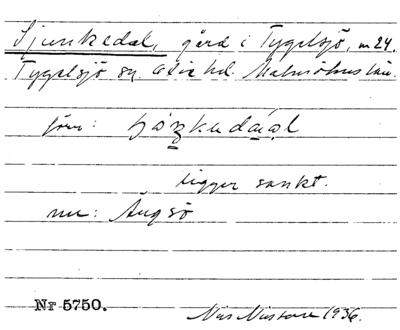 Sjunkedal, gård i Tygelsjö, nr 24.
Tygelsjö sn. Oxie hd. Malmöhus län.
förr:
ligger sankt.
nu: Ängsö
Nr 5750.
Nils Nilsson 1936.